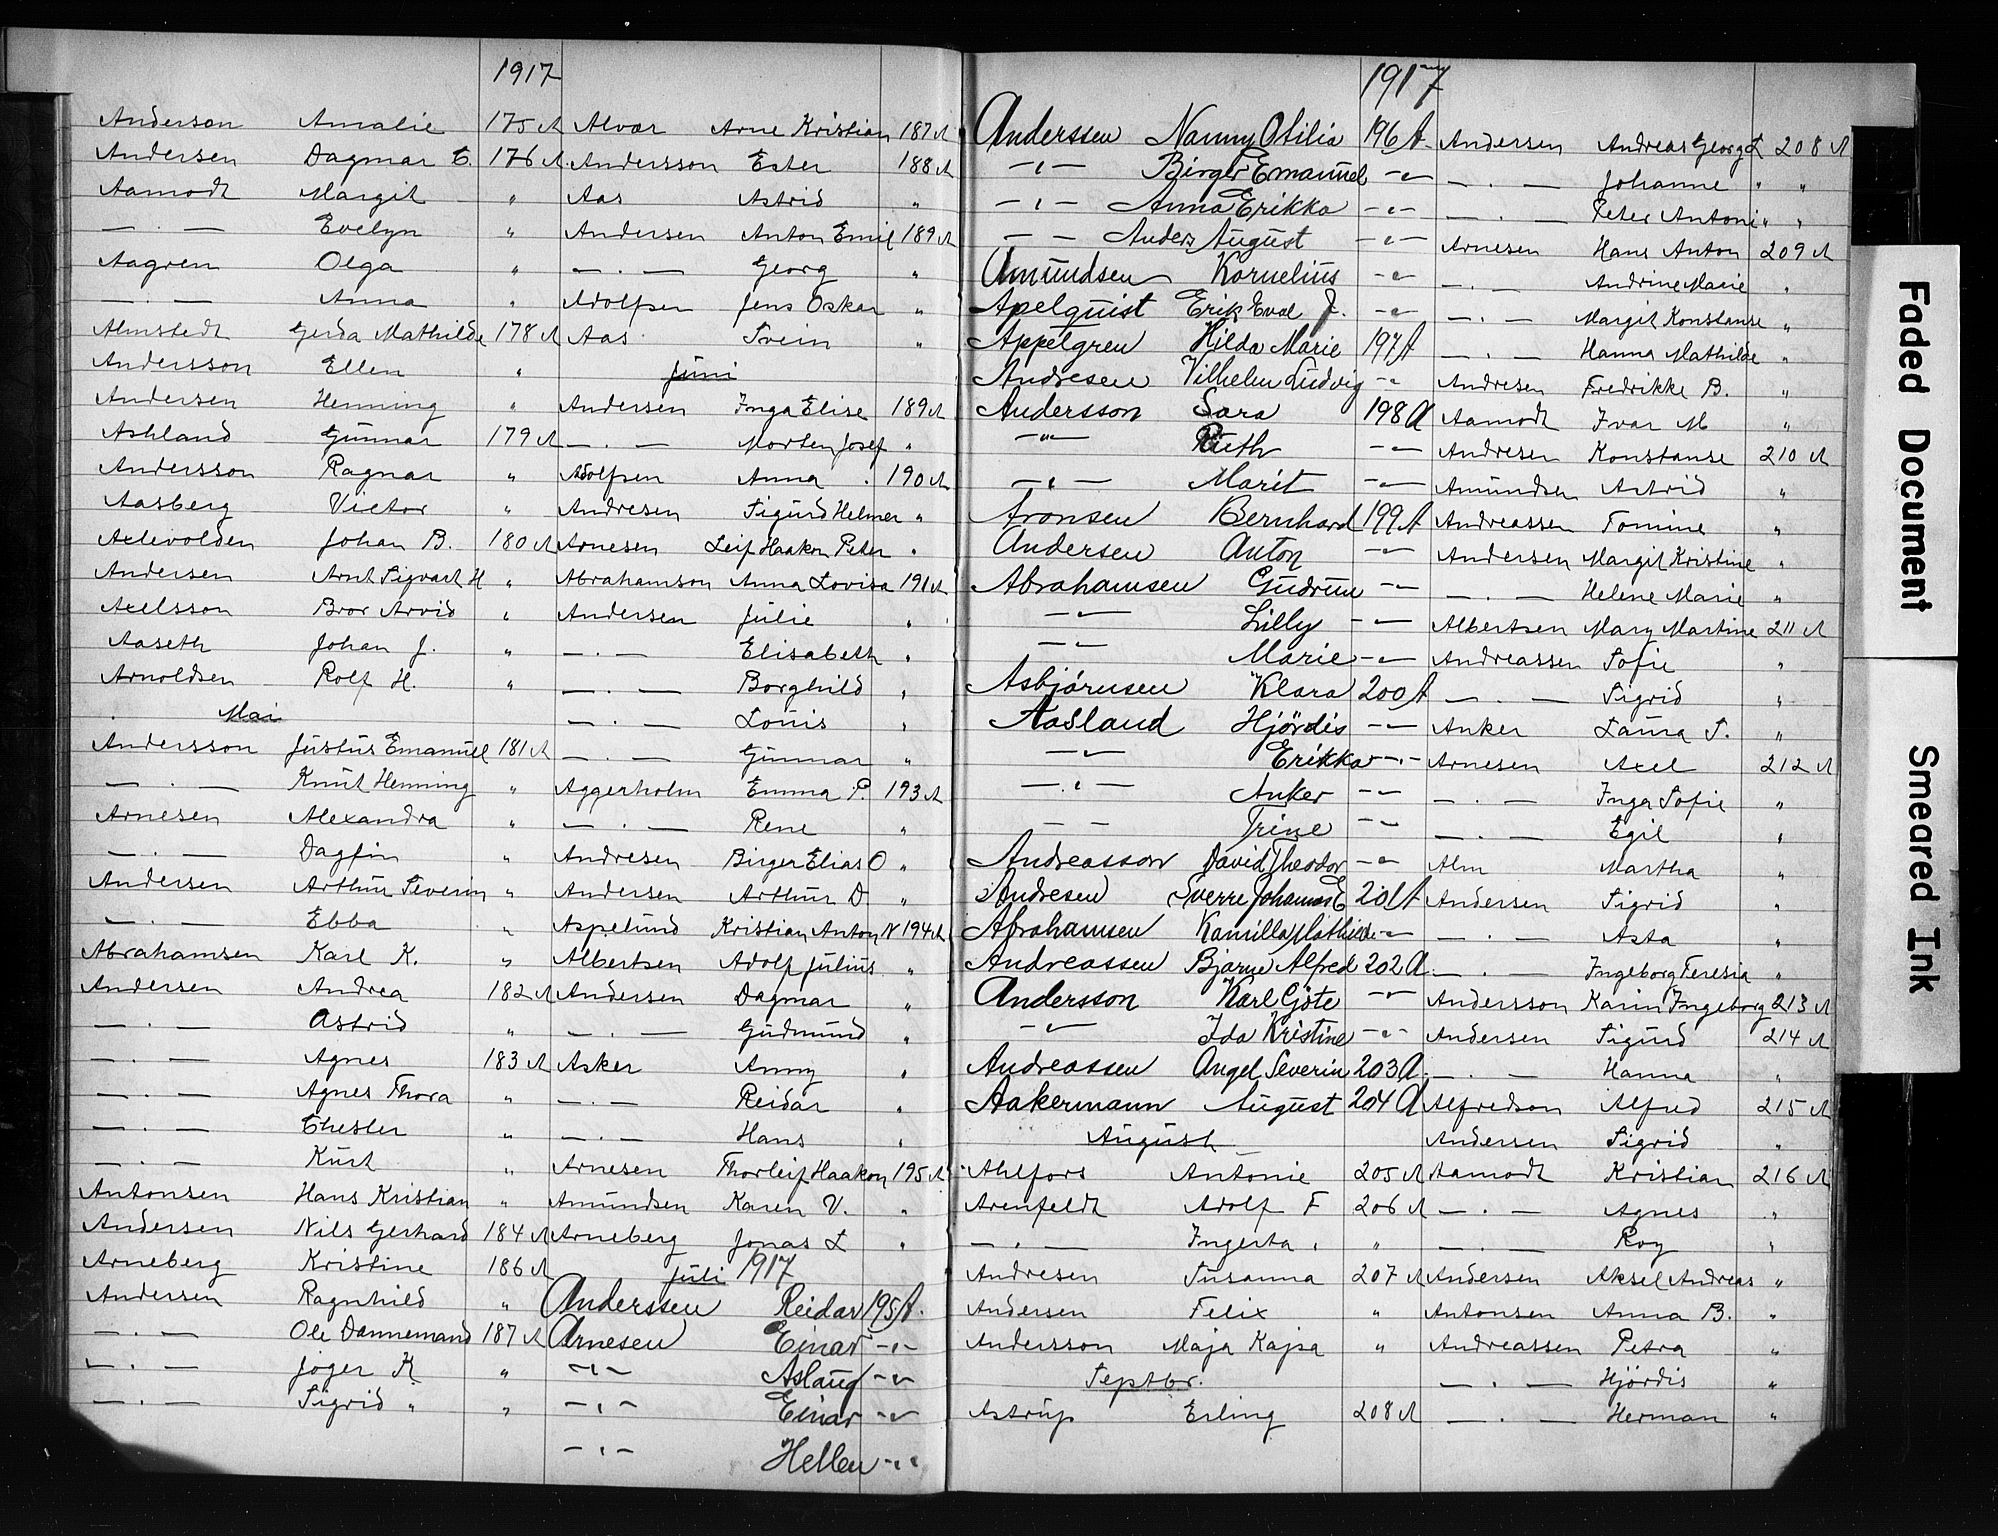 1917
Anderson Amalie 175 A
Andersen Dagmar E. 176 A
Aamodt Margit "
— . — Evelyn "
Aagren Olga "
— . — Anna "
Almstedt Gerda Mathilde 178 A
Andersson Ellen "
Andersen Henning "
Ashland Gunnar 179 A
Andersson Ragnar "
Aasberg Victor "
Axlevolden Johan B. 180 A
Andersen Arnt Sigvart H "
Axelsson Bror Arvid "
Aaseth Johan J. "
Arnoldsen Rolf H. "
Mai
Andersson Justus Emanuel 181 A
— . — Knut Henning "
Arnesen Alexandra "
— . — Dagfin "
Andersen Arthur Severin "
— . — Ebba "
Abrahamsen Karl K. "
Andersen Andrea 182 A
— . — Astrid "
— . — Agnes 183 A
— . — Agnes Thora "
— . — Chester "
— . — Kurt "
Antonsen Hans Kristian "
Andersen Nils Gerhard 184 A
Arneberg Kristine 186 A
Andersen Ragnhild "
— . — Ole Dannemand 187 A
— . — Jøger K "
— . — Sigrid " "
Alvar Arne Kristian 187 A
Andersson Ester 188 A
Aas Astrid "
Andersen Anton Emil 189 A
— . — Georg "
Adolfsen Jens Oskar "
Aas Svein "
Juni
Andersen Inga Elise 189 A
— . — Morten Josef "
Adolfsen Anna 190 A
Andresen Sigurd Helmer "
Arnesen Leif Haakon Peter "
Abrahamson Anna Lovisa 191 A
Andersen Julie "
— . — Elisabeth "
— . — Borghild "
— . — Louis "
— . — Gunnar "
Aggerholm Emma P. 193 A
— . — Rene "
Andresen Birger Elias O "
Andersen Arthur D. "
Aspelund Kristian Anton N 194 A
Albertsen Adolf Julius "
Andersen Dagmar "
— . — Gudmund "
Asker Anny "
— . — Reidar "
— . — Hans "
Arnesen Thorleif Haakon 195 A
Amundsen Karen V. "
Arneberg Jonas L "
Juli 1917
Anderssen Reidar 195 A.
Arnesen Einar -"-
-"- Aslaug -"-
-"- Einar -"-
-"- Hellen -"-
1917
Anderssen Nanny Otilia 196 A
-"- Birger Emanuel -"-
-"- Anna Erikka -"-
— — Anders August -"-
Amundsen Kornelius -"-
Apelquist Erik Eval J. -"-
Appelgren Hilda Marie 197 A
Andresen Vilhelm Ludvig -"-
Andersson Sara 198 A
-"- Ruth -"-
-"- Marit -"-
Aronsen Bernhard 199 A
Andersen Anton -"-
Abrahamsen Gudrun -"-
-"- Lilly -"-
-"- Marie -"-
Asbjørnsen Klara 200 A
Aasland Hjördis -"-
-"- Erikka -"-
-"- Anker -"-
— — Trine -"-
Andreasson David Theodor -"-
Andresen Sverre Johannes E 201 A
Abrahamsen Kamilla Mathilde -"-
Andreassen Bjarne Alfred 202 A
Andersson Karl Gjöte -"-
-"- Ida Kristine -"-
Andreassen Angel Severin 203 A
Aakermann August 204 A
August
Ahlfors Antonie 205 A
Arenfeldt Adolf F 206 A
— . — Ingerta "
Andresen Susanna 207 A
Andersen Felix "
Andersson Maja Kajsa "
Septbr.
Astrup Erling 208 A
Andersen Andreas Georg L 208 A
— . — Johanne " "
— . — Peter Antoni " "
Arnesen Hans Anton 209 A
— . — Andrine Marie "
— . — Margit Konstanse "
— . — Hanna Mathilde "
Andresen Fredrikke B. "
Aamodt Ivar M "
Andresen Konstanse 210 A
Amundsen Astrid "
Andreassen Tomine "
Andersen Margit Kristine "
— . — Helene Marie "
Albertsen Mary Martine 211 A
Andreassen Sofie "
— . — Sigrid "
Anker Laura S. "
Arnesen Axel 212 A
— . — Inga Sofie "
— . — Egil "
Alm Martha "
Andersen Sigrid "
— . — Asta "
— . — Ingeborg Teresia "
Andersson Karin Ingeborg 213 A
Andersen Sigurd 214 A
— . — Hanna "
Alfredson Alfred 215 A
Andersen Sigrid "
Aamodt Kristian 216 A
— . — Agnes "
— . — Roy "
Andersen Aksel Andreas "
Antonsen Anna B. "
Andreassen Petra "
— . — Hjördis "
— . — Herman "
Faded Document
Smeared Ink